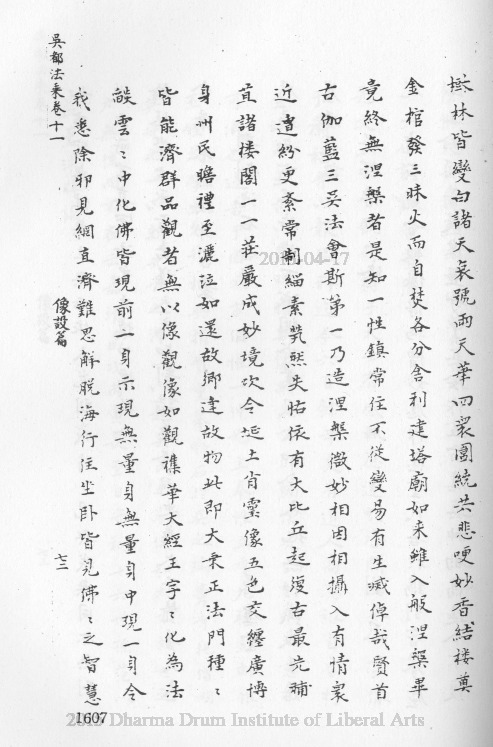 林皆變白諸天哀號雨天華四眾圍繞共悲哽妙香結樓奠
金棺發三昧火而自焚各分舍利建塔廟如来雖入般涅槃畢
竟終無涅槃者是知一性鎮常住不從變易有生滅偉哉賢首
古伽藍三吳法會斯第一乃造涅槃微妙相因相攝入有情眾
近遭紛更紊常制緇素煢然失怙依有大比丘起復古最先補
葺諸楼閣一一莊嚴成妙境次令埏土肖靈像五色交纏廣博
身州民瞻禮至灑泣如還故鄉逢故物此即大乗正法門種〻
皆能濟群品觀者無以像觀像如觀襍華大經王字〻化為法
雲〻中化佛皆現前一身示現無量身無量身中現一身令
我悉除邪見網直濟難思解脱海行住坐卧皆見佛〻之智慧
吳都法乗卷十一
像設篇
七二
1607
2011-04-17
Dharma Drum Institute of Liberal Arts